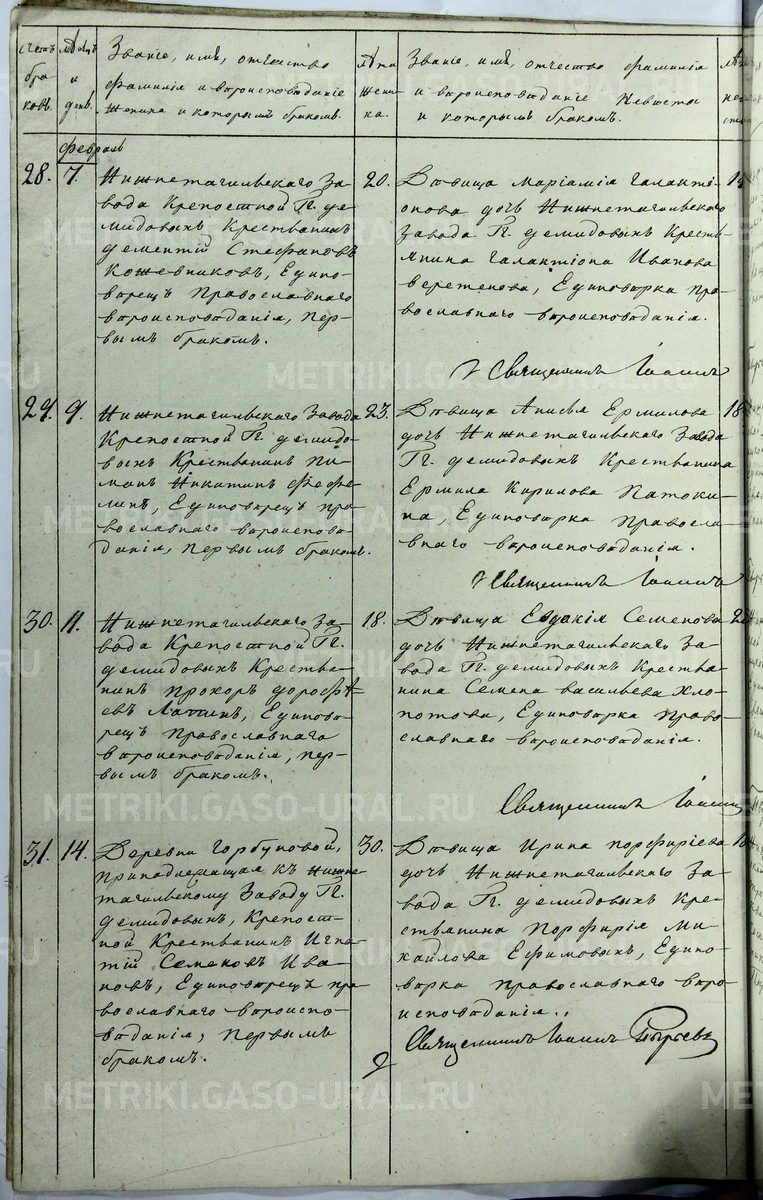 Счетъ браковъ.
Мѣсяцъ и день.
Званіе, имя, отчество
фамилія и вѣроисповѣданіе
жениха и которымъ бракомъ.
Лѣта жениха.
Званіе, имя, отчество фамилія
и вѣроисповѣданіе невѣсты
и которымъ бракомъ.
февраль
28. 7.
Нижнетагильскаго За-
вода Крепостной Гг. де-
мидовыхъ Крестьянинъ
дементій Стефановъ
Кожевниковъ, Едино-
верецъ Православнаго
вѣроисповѣданія, пер-
вымъ бракомъ.
20.
Дѣвица Маріамія Галакті-
онова дочь Нижнетагильскаго
Завода Гг. демидовыхъ Кресть-
янина Галактіона Иванова
веретенова, Единоверка Пра-
вославнаго вѣроисповѣданія.
Священникъ Іоаннъ
29. 9.
Нижнетагильскаго Завода
Крепостной Гг. демидо-
выхъ Крестьянинъ Пи-
манъ Никитинъ Фефе-
линъ, Единоверецъ пра-
вославнаго вѣроисповѣ-
данія, первымъ бракомъ.
23.
Дѣвица Анисья Ермилова
дочь Нижнетагильскаго Завода
Гг. демидовыхъ Крестьянина
Ермила Кирилова Патоки-
на, Единоверка Правосла-
внаго вѣроисповѣданія.
18
Священникъ Іоаннъ
30. 11.
Нижнетагильскаго За-
вода Крепостной Гг.
демидовыхъ Крестья-
нинъ Прохоръ дорофѣ-
евъ Лапинъ, Единове-
рецъ Православнаго
вѣроисповѣданія, пер-
вымъ бракомъ.
18.
Дѣвица Евдокія Семенова
дочь Нижнетагильскаго За-
вода Гг. демидовыхъ Крестья-
нина Семена васильева Хло-
потова, Единоверка Право-
славнаго вѣроисповѣданія.
Священникъ Іоаннъ
31. 14.
Деревни Горбуновой,
принадлежащая къ Нижне-
тагильскому Заводу Гг.
демидовыхъ, Крепост-
ной Крестьянинъ Игна-
тій Семеновъ Ива-
новъ, Единоверецъ пра-
вославнаго вѣроиспо-
вѣданія, первымъ
бракомъ.
30.
Дѣвица Ирина порфиріева
дочь Нижнетагильскаго За-
вода Гг. демидовыхъ Кре-
стьянина Порфирія Ми-
хайлова Ефимовыхъ, Едино-
верка православнаго вѣро-
исповѣданія.
Священникъ Іоаннъ Пырьевъ
METRIKI.GASO-URAL.RU